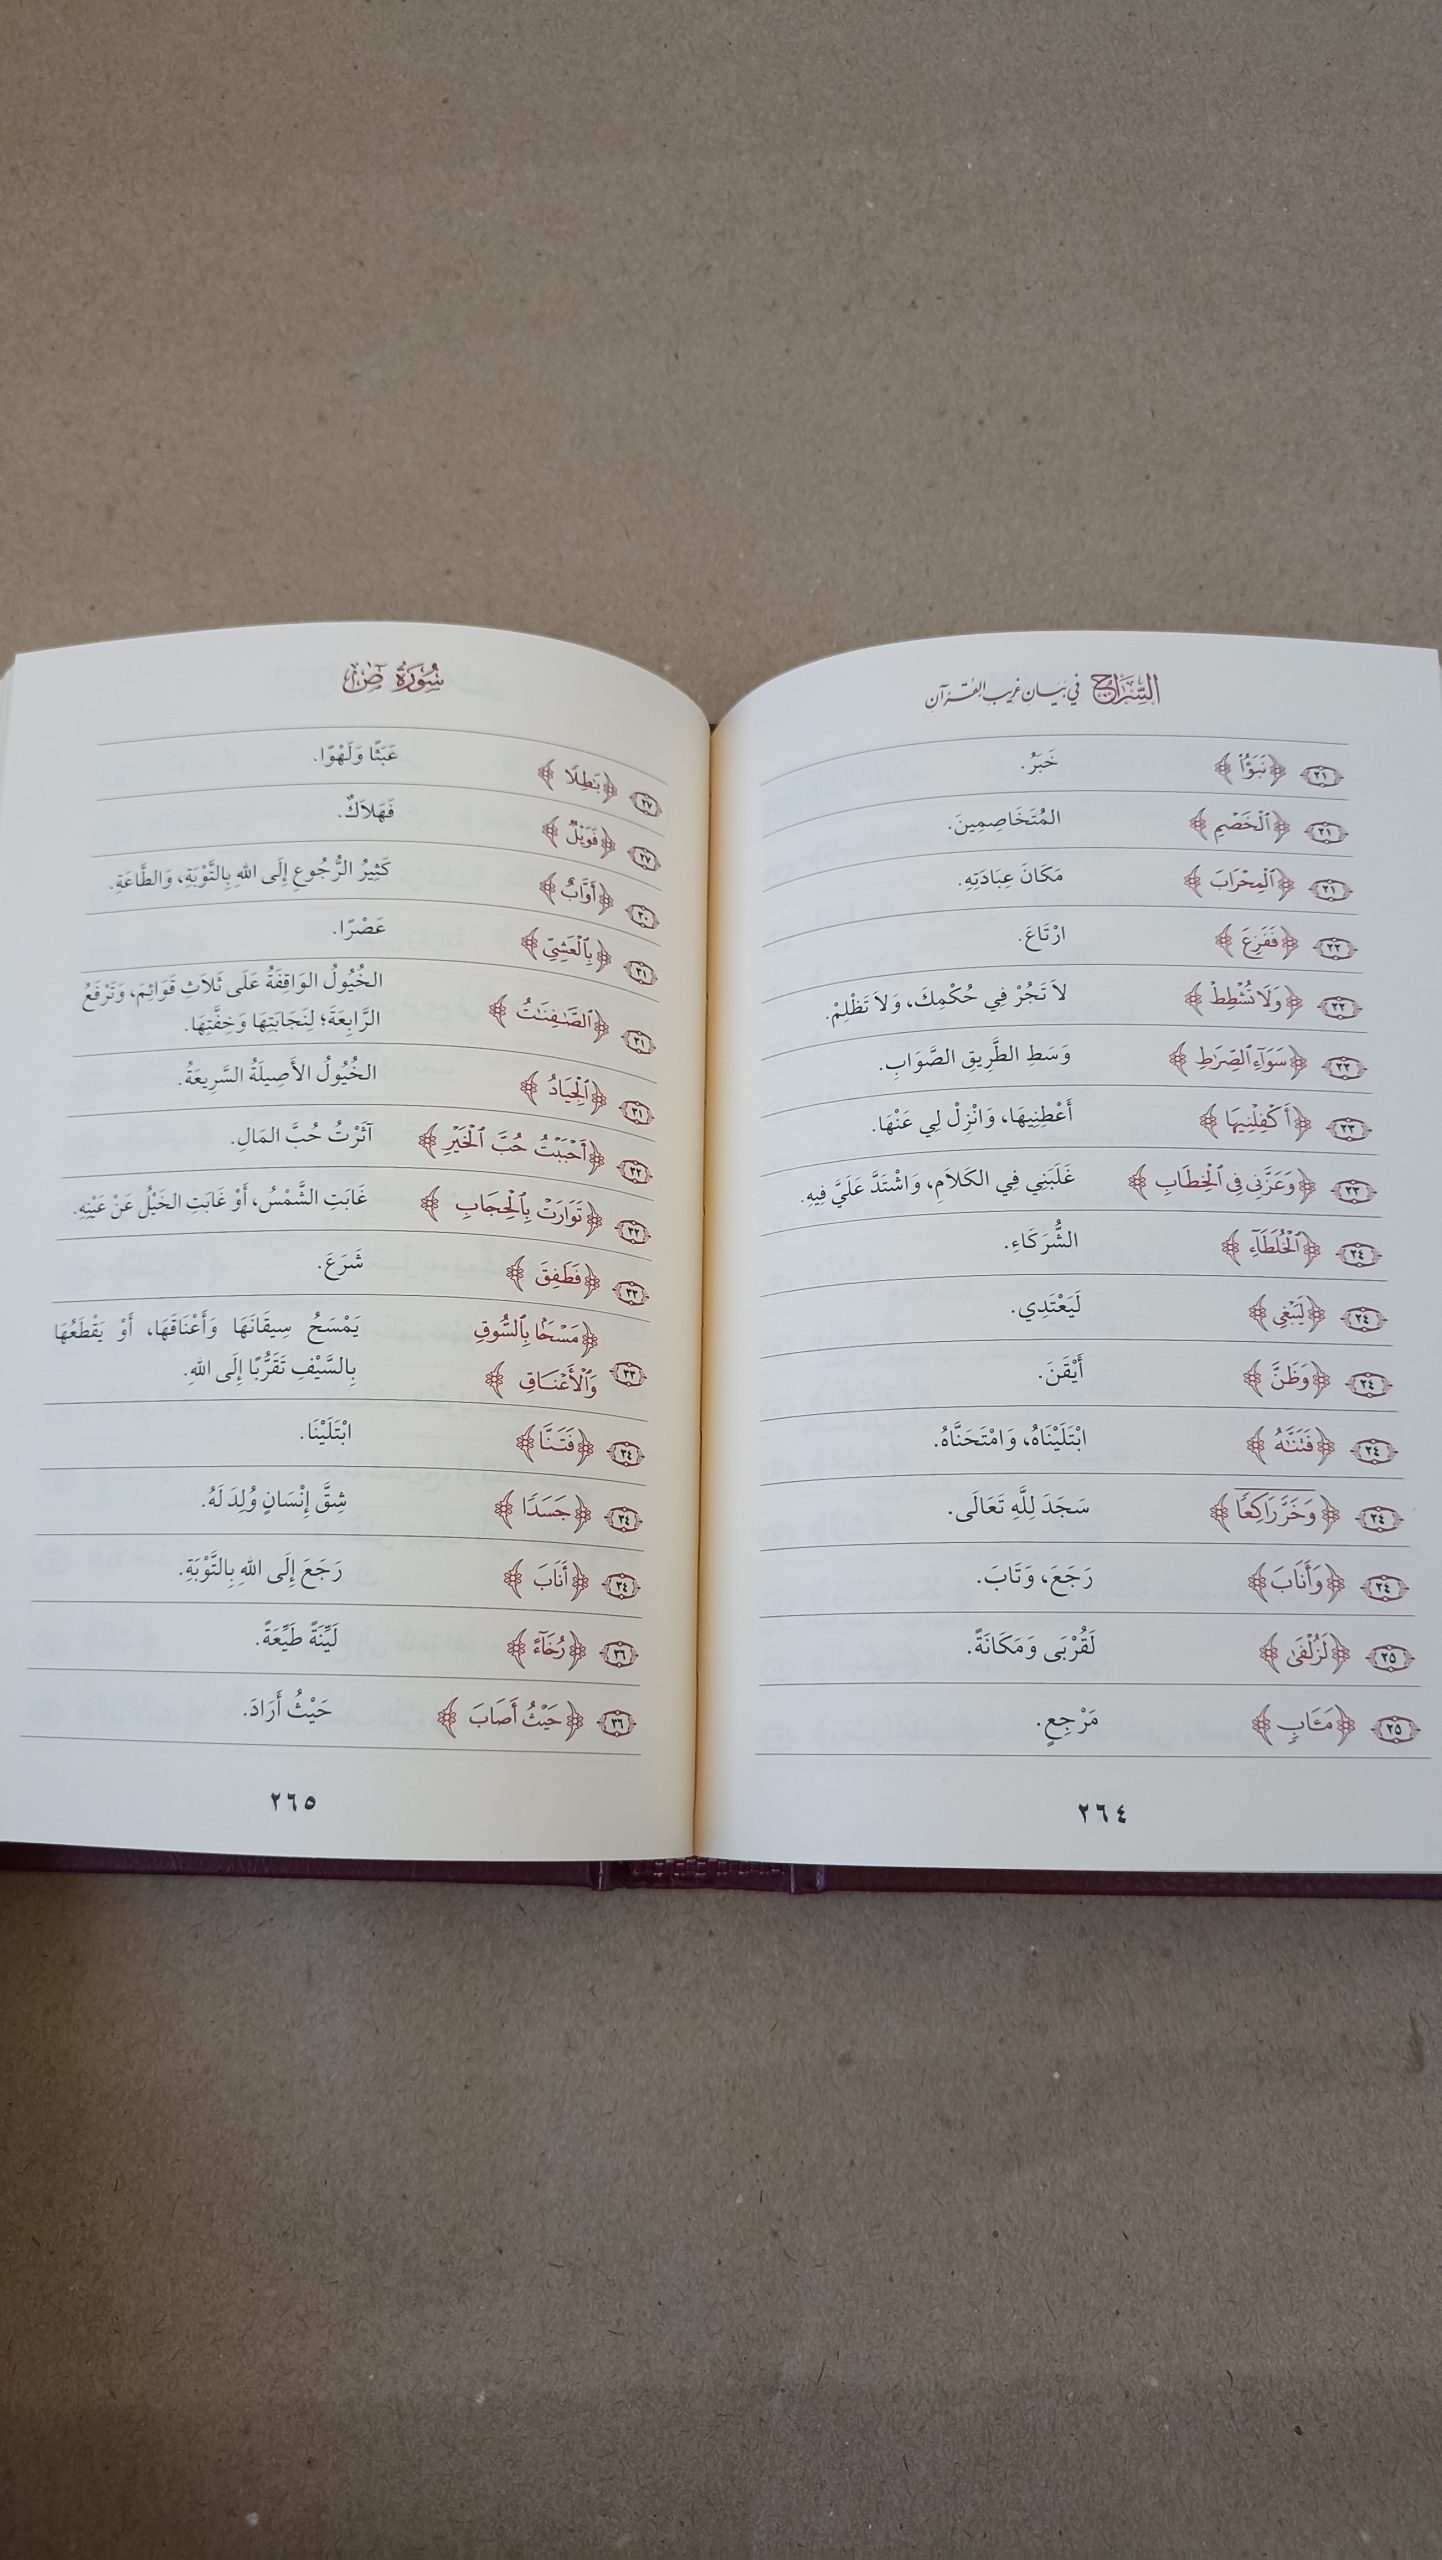 السِّرَاج في بَيَان غَريب القُرآن
٢١ ﴿نَبَؤُا۟﴾ خَبَرُ.
٢١ ﴿ٱلْخَصْمِ﴾ المُتَخَاصِمِينَ.
٢١ ﴿ٱلْمِحْرَابَ﴾ مَكَانَ عِبَادَتِهِ.
٢٢ ﴿فَفَزِعَ﴾ ارْتَاعَ.
٢٢ ﴿وَلَا تُشْطِطْ﴾ لاَ تَجُرْ فِي حُكْمِكَ، وَلاَ تَظْلِمْ.
٢٢ ﴿سَوَآءِ ٱلصِّرَٰطِ﴾ وَسَطِ الطَّرِيقِ الصَّوَابِ.
٢٣ ﴿أَكْفِلْنِيهَا﴾ أَعْطِنِيهَا، وَانْزِلْ لِي عَنْهَا.
٢٣ ﴿وَعَزَّنِى فِى ٱلْخِطَابِ﴾ غَلَبَنِي فِي الكَلاَمِ، وَاشْتَدَّ عَلَيَّ فِيهِ.
٢٤ ﴿ٱلْخُلَطَآءِ﴾ الشُّرَكَاءِ.
٢٤ ﴿لَيَبْغِى﴾ لَيَعْتَدِي.
٢٤ ﴿وَظَنَّ﴾ أَيْقَنَ.
٢٤ ﴿فَتَنَّٰهُ﴾ ابْتَلَيْنَاهُ، وَامْتَحَنَّاهُ.
٢٤ ﴿وَخَرَّ رَاكِعًا﴾ سَجَدَ لِلَّهِ تَعَالَى.
٢٤ ﴿وَأَنَابَ﴾ رَجَعَ، وَتَابَ.
٢٥ ﴿لَزُلْفَىٰ﴾ لَقُرْبَى وَمَكَانَةً.
٢٥ ﴿مَـَٔابٍ﴾ مَرْجِعٍ.
٢٦٤
سُورَةُ صٓ
٢٧ ﴿بَٰطِلًا﴾ عَبَثًا وَلَهْوًا.
٢٧ ﴿فَوَيْلٌ﴾ فَهَلاَكٌ.
٣٠ ﴿أَوَّابٌ﴾ كَثِيرُ الرُّجُوعِ إِلَى اللهِ بِالتَّوْبَةِ، وَالطَّاعَةِ.
٣١ ﴿بِٱلْعَشِىِّ﴾ عَصْرًا.
٣١ ﴿ٱلصَّٰفِنَٰتُ﴾ الخُيُولُ الوَاقِفَةُ عَلَى ثَلاَثِ قَوَائِمَ، وَتَرْفَعُ
الرَّابِعَةَ؛ لِنَجَابَتِهَا وَخِفَّتِهَا.
٣١ ﴿ٱلْجِيَادُ﴾ الخُيُولُ الأَصِيلَةُ السَّرِيعَةُ.
٣٢ ﴿أَحْبَبْتُ حُبَّ ٱلْخَيْرِ﴾ آثَرْتُ حُبَّ المَالِ.
٣٢ ﴿تَوَارَتْ بِٱلْحِجَابِ﴾ غَابَتِ الشَّمْسُ، أَوْ غَابَتِ الخَيْلُ عَنْ عَيْنِهِ.
٣٣ ﴿فَطَفِقَ﴾ شَرَعَ.
٣٣ ﴿مَسْحًۢا بِٱلسُّوقِ يَمْسَحُ سِيقَانَهَا وَأَعْنَاقَهَا، أَوْ يَقْطَعُهَا
وَٱلْأَعْنَاقِ﴾ بِالسَّيْفِ تَقَرُّبًا إِلَى اللهِ.
٣٤ ﴿فَتَنَّا﴾ ابْتَلَيْنَا.
٣٤ ﴿جَسَدًا﴾ شِقَّ إِنْسَانٍ وُلِدَ لَهُ.
٣٤ ﴿أَنَابَ﴾ رَجَعَ إِلَى اللهِ بِالتَّوْبَةِ.
٣٦ ﴿رُخَآءً﴾ لَيِّنَةً طَيِّعَةً.
٣٦ ﴿حَيْثُ أَصَابَ﴾ حَيْثُ أَرَادَ.
٢٦٥